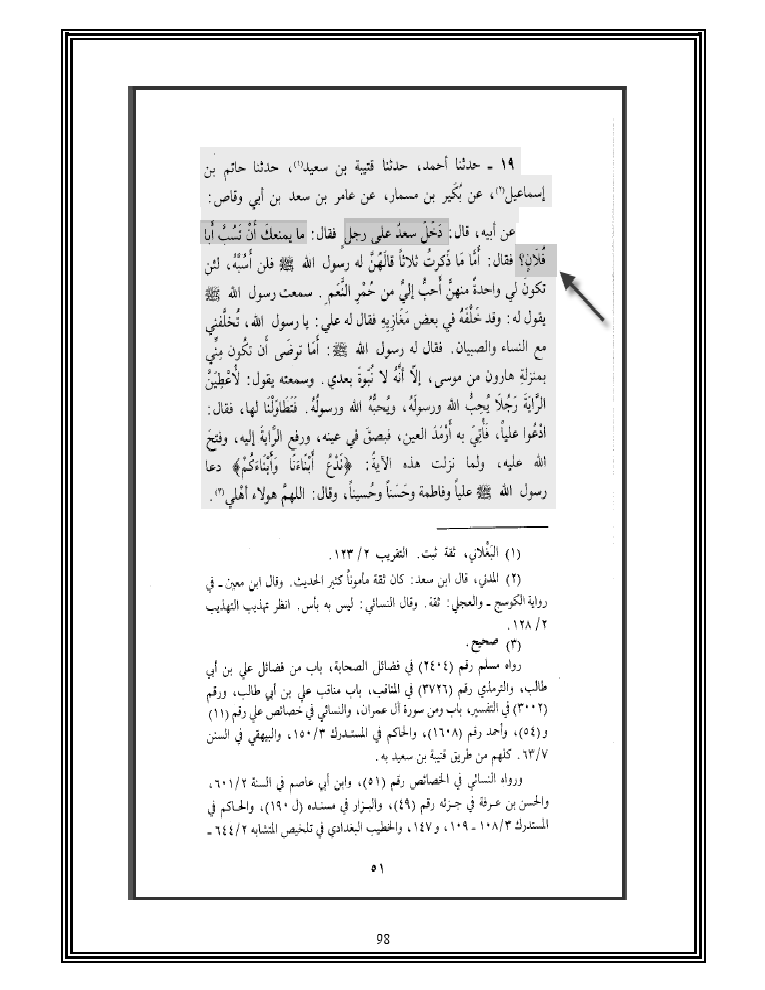 ١٩ ـ حدثنا أحمد، حدثنا قتيبة بن سعيد(١)، حدثنا حاتم بن
إسماعيل(٢)، عن بُكَير بن مسمار، عن عامر بن سعد بن أبي وقاص:
عن أبيه، قال: دَخَلَ سعدُ على رجلٍ فقال: ما يمنعكَ أنْ تَسُبَّ أبا
فُلَانٍ؟ فقال: أمَّا مَا ذَكرتُ ثلاثاً قالَهُنَّ له رسول الله ﷺ فلن أَسُبَّهُ، لئن
تكونَ لي واحدةٌ منهنَّ أحبُّ إليَّ من حُمْرِ النَّعَم. سمعت رسول الله ﷺ
يقول له: وقد خَلَّفَهُ في بعض مَغَازِيهِ فقال له علي: يا رسول الله، تُخلِّفني
مع النساء والصبيان. فقال له رسول الله ﷺ: أمَا ترضَى أن تكُون مِنِّي
بمنزلةِ هارون من موسى، إلَّا أنَّهُ لا نُبُوةَ بعدي. وسمعته يقول: لأُعْطِيَنَّ
الرَّايَةَ رَجُلًا يُحِبُّ الله ورسولَهُ، ويُحبُّهُ الله ورسولُهُ. فَتَطَاوَلْنَا لها، فقال:
ادْعُوا علياً، فَأُتِيَ به أَرْمَدَ العين، فبصقَ في عينه، ورفع الرَّايةَ إليه، وفتحَ
الله عليه، ولما نزلت هذه الآيةُ: ﴿نَدْعُ أَبْنَاءَنَا وَأَبْنَاءَكُمْ﴾ دعا
رسول الله ﷺ علياً وفاطمة وحَسَناً وحُسيناً، وقال: اللهمَّ هولاء أهْلي(٣).
(١) البَغْلاني، ثقة ثبت. التقريب ٢/ ١٢٣.
(٢) المدني، قال ابن سعد: كان ثقة مأموناً كثير الحديث. وقال ابن معين ـ في
رواية الكوسج ـ والعجلي: ثقة. وقال النسائي: ليس به بأس. انظر تهذيب التهذيب
٢/ ١٢٨.
(٣) صحيح.
رواه مسلم رقم (٢٤٠٤) في فضائل الصحابة، باب من فضائل علي بن أبي
طالب، والترمذي رقم (٣٧٢٦) في المناقب، باب مناقب علي بن أبي طالب، ورقم
(٣٠٠٢) في التفسير، باب ومن سورة آل عمران، والنسائي في خصائص علي رقم (١١)
و(٥٤)، وأحمد رقم (١٦٠٨)، والحاكم في المستدرك ٣/ ١٥٠، والبيهقي في السنن
٧/ ٦٣. كلهم من طريق قتيبة بن سعيد به.
ورواه النسائي في الخصائص رقم (٥١)، وابن أبي عاصم في السنة ٢/ ٦٠١،
والحسن بن عرفة في جزئه رقم (٤٩)، والبزار في مسنده (ل ١٩٠)، والحاكم في
المستدرك ٣/ ١٠٨ ـ ١٠٩، و١٤٧، والخطيب البغدادي في تلخيص المتشابه ٢/ ٦٤٤ ـ
٥١
98